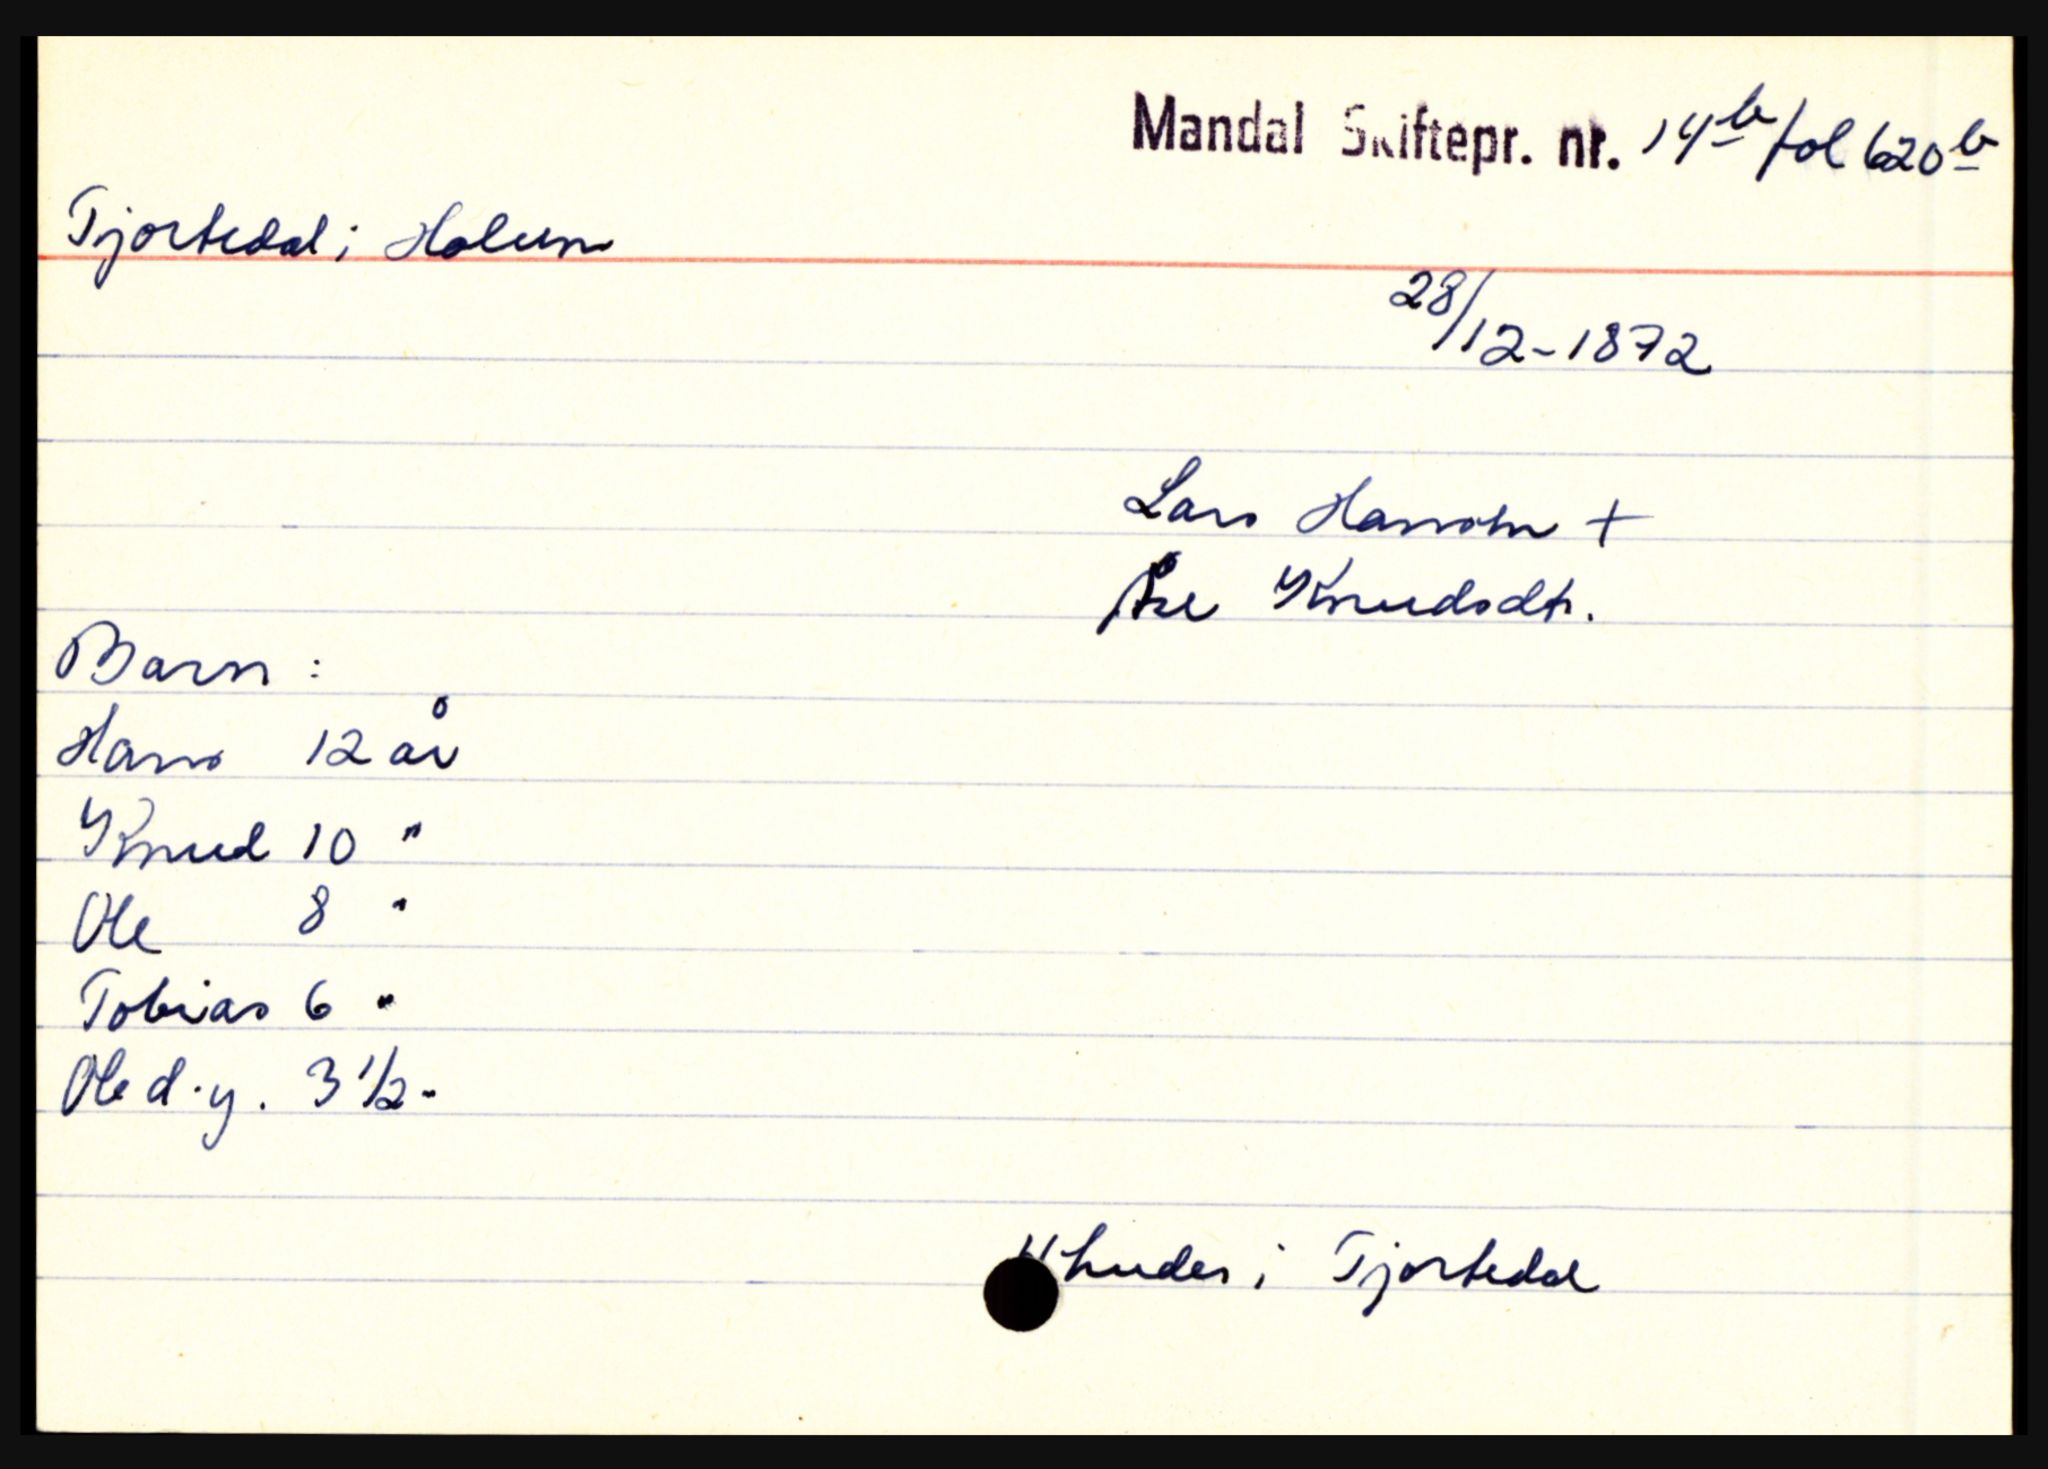 Mandal Skiftepr. nr. 14b fol 620b
Tjortedal i Holum
28/12-1872
Lars Hansen +
Åse Knudsdtr.
Barn :
Hans 12 år
Knud 10 "
Ole 8 "
Tobias 6 "
Ole d.y. 3 1/2 "
i Tjortedal